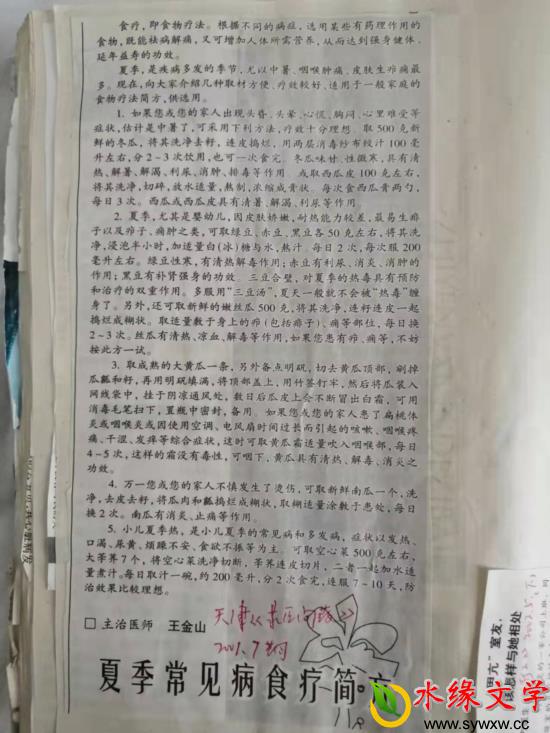 食疗，即食物疗法。根据不同的病症，选用某些有药理作用的
食物，既能祛病解痛，又可增加人体所需营养，从而达到强身健体、
延年益寿的功效。
夏季，是疾病多发的季节，尤以中暑、咽喉肿痛、皮肤生疖痛最
多。现在，向大家介绍几种取材方便、疗效较好、适用于一般家庭的
食物疗法简方，供选用。
1. 如果您或您的家人出现头昏、头晕、心慌、胸闷、心里难受等
症状，估计是中暑了，可采用下列方法，疗效十分理想。取500克新
鲜的冬瓜，将其洗净去籽，连皮捣烂，用两层消毒纱布绞汁100毫
升左右，分2～3次饮用，也可一次食完。冬瓜味甘、性微寒，具有清
热、解暑、解渴、利尿、消肿、排毒等作用。或取西瓜皮100克左右，
将其洗净，切碎，放水适量，熬制，浓缩成膏状。每次食西瓜膏两勺，
每日3次。西瓜或西瓜皮具有清暑、解渴、利尿等作用。
2. 夏季，尤其是婴幼儿，因皮肤娇嫩，耐热能力较差，最易生痱
子以及疖子、痈肿之类，可取绿豆、赤豆、黑豆各50克左右，将其洗
净，浸泡半小时，加适量白(冰)糖与水，熬汁，每日2次，每次服200
毫升左右。绿豆性寒，有清热解毒作用；赤豆有利尿、消炎、消肿的
作用；黑豆有补肾强身的功效。三豆合璧，对夏季的热毒具有预防
和治疗的双重作用。多服用“三豆汤”，夏天一般就不会被“热毒”缠
身了。另外，还可取新鲜的嫩丝瓜500克，将其洗净，连籽连皮一起
捣烂成糊状。取适量敷于身上的疖(包括痱子)、痛等部位，每日换
2～3次。丝瓜有清热、凉血、解毒等作用，如果您患有疖、痛等，不妨
按此方一试。
3. 取成熟的大黄瓜一条，另外备点明矾，切去黄瓜顶部，刷掉
瓜瓤和籽，再用明矾填满，将顶部盖上，用竹签钉牢，然后将瓜装入
网线袋中，挂于阴凉通风处，数日后瓜皮上会不断冒出白霜，可用
消毒毛笔扫下，置瓶中密封，备用。如果您或您的家人患了扁桃体
炎或咽喉炎或因使用空调、电风扇时间过长而引起的咳嗽、咽喉疼
痛、干涩、发痒等综合症状，这时可取黄瓜霜适量吹入咽喉部，每日
4～5次，这样的霜没有毒性，可咽下，黄瓜具有清热、解毒、消炎之
功效。
4. 万一您或您的家人不慎发生了烫伤，可取新鲜南瓜一个，洗
净，去皮去籽，将瓜肉和瓤捣烂成糊状，取糊适量涂敷于患处，每日
换2次。南瓜有消炎、止痛等作用。
5. 小儿夏季热，是小儿夏季的常见病和多发病，症状以发热、
口渴、尿黄、烦躁不安、食欲不振等为主。可取空心菜500克左右，
大荸荠7个，将空心菜洗净切断，荸荠连皮切片，二者一起加水适
量煮汁。每日取汁一碗，约200毫升，分2次食完，连服7～10天，防
治效果比较理想。
□ 主治医师 王金山
2001.7
夏季常见病食疗简方
室友，
该怎样与她相处
水缘文学
www.sywxw.cc